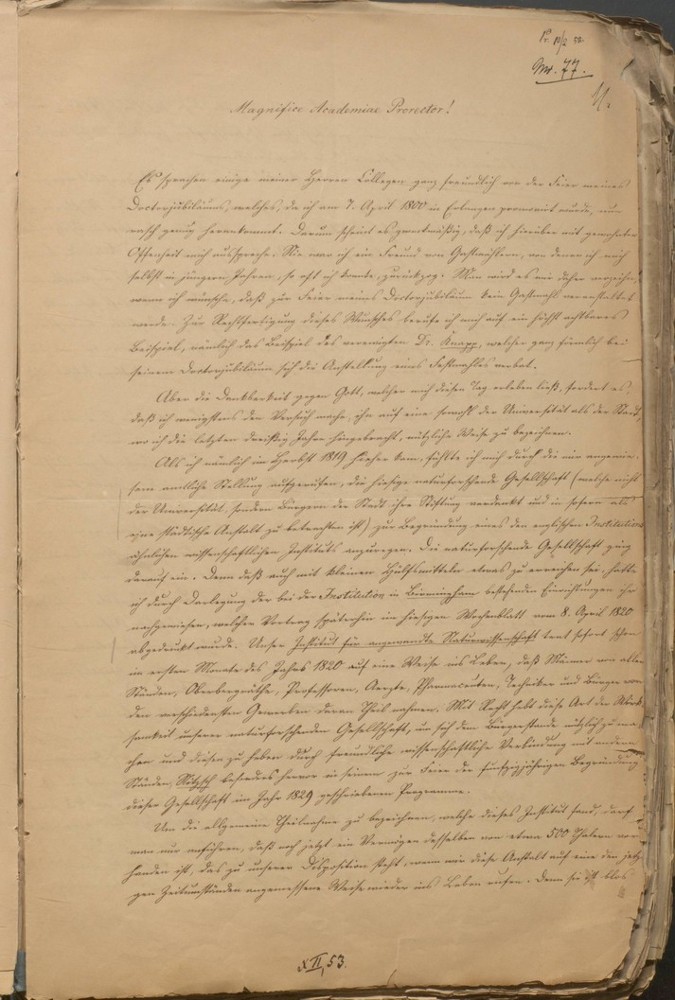 Nr. 77.
Magnifice Academiae Prorector!
Es sprachen einige meiner Herren Collegen ganz freundlich von der Feier meines
Doctorjubiläums, welches, da ich am 7. April 1800 in Erlangen promovirt wurde, nun
rasch genug herankommt. Darum scheint es zweckmäßig, daß ich hierüber mit gewohnter
Offenheit mich ausspreche. Nie war ich ein Freund von Gastmählern, von denen ich mich
selbst in jüngern Jahren, so oft ich konnte, zurückzog. Man wird es mir daher verzeihen,
wenn ich wünsche, daß zur Feier meines Doctorjubiläum kein Gastmahl veranstaltet
werde. Zur Rechtfertigung dieses Wunsches berufe ich mich auf ein höchst achtbares
Beispiel, nämlich das Beispiel des verewigten Dr. Knapp, welcher ganz förmlich bei
seinem Doctorjubiläum sich die Anstellung eines Festmahles verbat.
Aber die Dankbarkeit gegen Gott, welcher mich diesen Tag erleben ließ, fordert es,
daß ich wenigstens den Versuch mache, ihn auf eine sowohl der Universität als der Stadt,
wo ich die letzten dreißig Jahre hingebracht, nützliche Weise zu bezeichnen.
Als ich nämlich im Herbst 1819 hieher kam, fühlte ich mich durch die mir angewie-
sene amtliche Stellung aufgerufen, die hiesige naturforschende Gesellschaft (welche nicht
der Universität, sondern Bürgern der Stadt ihre Stiftung verdankt und in sofern als
eine städtische Anstalt zu betrachten ist) zur Begründung eines den englischen Institutions
ähnlichen wissenschaftlichen Instituts anzuregen. Die naturforschende Gesellschaft ging
darauf ein. Denn daß auch mit kleinen Hülfsmitteln etwas zu erreichen sei, hatte
ich durch Darlegung der bei der Institution in Birmingham bestehenden Einrichtungen ihr
nachgewiesen, welcher Vortrag späterhin im hiesigen Wochenblatt vom 8. April 1820
abgedruckt wurde. Unser Institut für angewandte Naturwissenschaft trat sofort schon
im ersten Monate des Jahrs 1820 auf eine Weise ins Leben, daß Männer von allen
Ständen, Oberbergräthe, Professoren, Aerzte, Pharmaceuten, Techniker und Bürger von
den verschiedensten Gewerben daran Theil nahmen. Mit Recht hebt diese Art der Wirk-
samkeit unserer naturforschenden Gesellschaft, um sich dem Bürgerstande nützlich zu ma-
chen und diesen zu heben durch freundliche wissenschaftliche Verbindung mit andern
Ständen, Nitzsch besonders hervor in seinem zur Feier der funfzigjährigen Begründung
dieser Gesellschaft im Jahr 1829 geschriebenen Programme.
Um die allgemeine Theilnahme zu bezeichnen, welche dieses Institut fand, darf
man nur anführen, daß noch jetzt ein Vermögen desselben von etwa 500 Thalern vor-
handen ist, das zu unserer Disposition steht, wenn wir diese Anstalt auf eine den jetzi-
gen Zeitumständen angemessene Weise wieder ins Leben rufen. Denn sie ist blos
XII, 53.